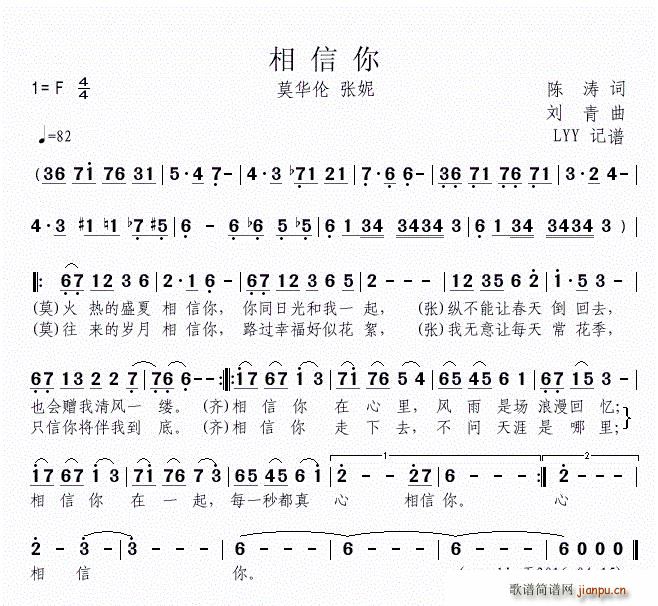 相信你
1=F 4/4 莫华伦 张妮 陈涛词
刘青曲
♩=82 LYY 记谱
(36 71 76 31 | 5·4 7- | 4·3 ♭71 21 | 7·6 6- | 36 71 76 71 | 3·2 4- |
4·3 #1 ♮1 ♭7 #5 | 6 - 6 ♭6 5 ♭5 | 6 1 34 3434 3 | 6 1 34 3434 3 ) |
‖: 67 123 6 | 2·1 6 - | 67 123 65 | 2 - - - | 12 35 6 2 | 1·5 3 - |
(莫)火 热的盛夏 相信你, 你同日光和我一 起, (张)纵不能让春天 倒 回去,
(莫)往 来的岁月 相信你, 路过幸福好似花 絮, (张)我无意让每天 常 花季,
67 13 2 2 7 | 76 6 - - :‖: 17 67 1 3 | 71 76 5 4 | 65 45 6 1 | 67 15 3 - |
也会赠我清风一 缕。 (齐)相信你 在 心 里, 风雨 是场 浪漫回 忆;
只信你将伴我到 底。 (齐)相信你 走 下 去, 不问 天涯 是 哪 里;
17 67 1 3 | 71 76 7 3 | 65 45 6 1 | 2 - 27 | 6 - - - :‖ 2 - - - |
相信你 在 一 起, 每一秒都真 心 相信 你。 心
2 - 3 - | 3 - - - | 6 - - - | 6 - - - | 6 - - - | 6 0 0 0 ‖
相 信 你。
歌谱简谱网
jianpu.cn